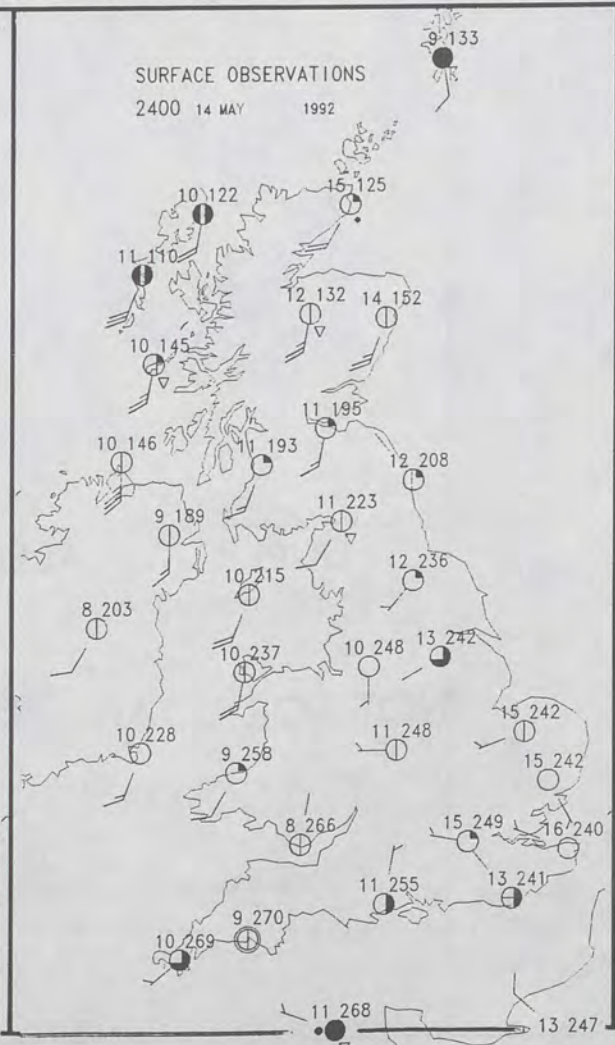 9 133
SURFACE OBSERVATIONS
2400 14 MAY 1992
15 125
10 122
11 110
12 132
14 152
10 145
11 195
10 146
11 193
12 208
11 223
9 189
12 236
10 215
8 203
13 242
10 237
10 248
15 242
10 228
11 248
9 258
15 242
8 266
15 249
16 240
11 255
13 241
9 270
10 269
11 268
13 247